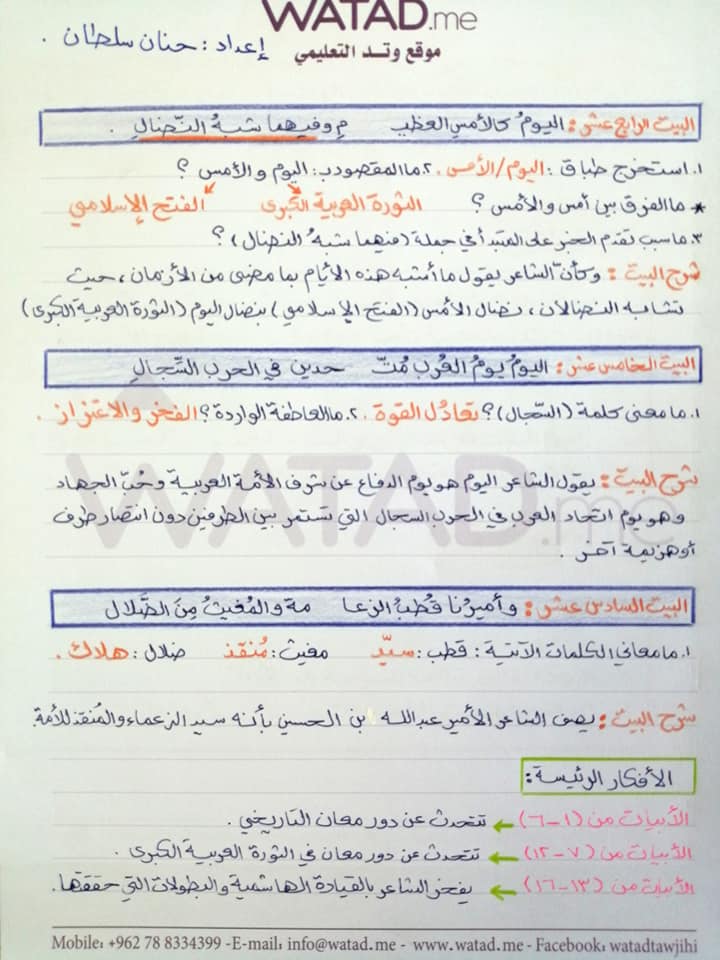 WATAD.me
موقع وتد التعليمي
إعداد : حنان سلطان .
البيت الرابع عشر : اليومُ كالأمسِ العظيـ مِ وفيهما شبهُ النّضالِ .
١. استخرج طباق : اليوم/الأمس . ٢. ما المقصود ب : اليوم والأمس ؟
* ما الفرق بين أمس والأمس ؟ الثورة العربية الكبرى الفتح الإسلامي
٣. ما سبب تقدّم الخبر على المبتدأ في جملة (فيهما شبهُ النضال) ؟
شرح البيت : وكأنّ الشاعر يقول ما أشبه هذه الأيام بما مضى من الأزمان ، حيث
تشابه النضالان ، نضال الأمس (الفتح الإسلامي) بنضال اليوم (الثورة العربية الكبرى)
البيت الخامس عشر : اليومُ يومُ العُربِ مُتّـ حدين في الحربِ السِّجالِ
١. ما معنى كلمة (السِّجال) ؟ تعادُل القوة . ٢. ما العاطفة الواردة ؟ الفخر والاعتزاز .
شرح البيت : يقول الشاعر اليوم هو يوم الدفاع عن شرف الأمة العربية وحُبّ الجهاد
وهو يوم اتحاد العرب في الحرب السجال التي تستمر بين الطرفين دون انتصار طرف
أو هزيمة آخر .
WATAD.me
البيت السادس عشر : وأميرُنا قُطبُ الزعا مة والمُغيثُ مِنَ الضّلال
١. ما معاني الكلمات الآتية : قطب : سيّد مغيث : مُنقذ ضلال : هلاك .
شرح البيت : يصف الشاعر الأمير عبدالله ابن الحسين بأنه سيد الزعماء والمُنقذ للأمة.
الأفكار الرئيسة :
الأبيات من (١-٦) ← تتحدث عن دور معان التاريخي .
الأبيات من (٧-١٢) ← تتحدث عن دور معان في الثورة العربية الكبرى .
الأبيات من (١٣-١٦) ← يفخر الشاعر بالقيادة الهاشمية والبطولات التي حققتها .
Mobile: +962 78 8334399 -E-mail: info@watad.me - www.watad.me - Facebook: watadtawjihi